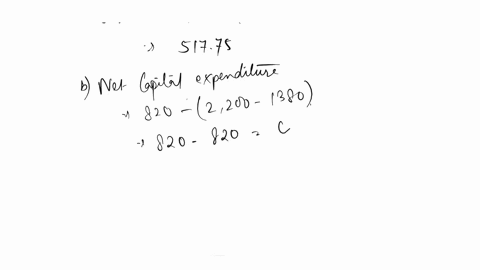 → 517.75
b) Net Capital expenditure
→ 820 - (2,200 - 1380)
→ 820 - 820 = C